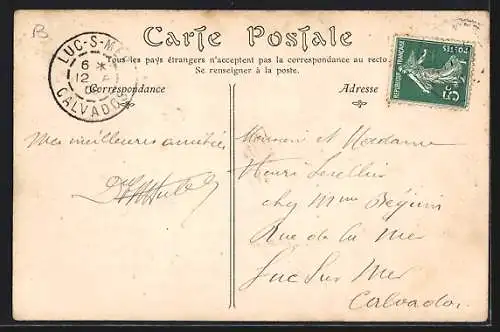 B
Carte Postale
Tous les pays étrangers n'acceptent pas la correspondance au recto.
Se renseigner à la poste.
Correspondance
Adresse
LUC-S-MER
6 *
12
CALVADOS
REPUBLIQUE FRANÇAISE
POSTES
5c
Mes meilleures amitiés
Monsieur et Madame
Henri
chez Mme
Rue de la Mer
Luc sur Mer
Calvados